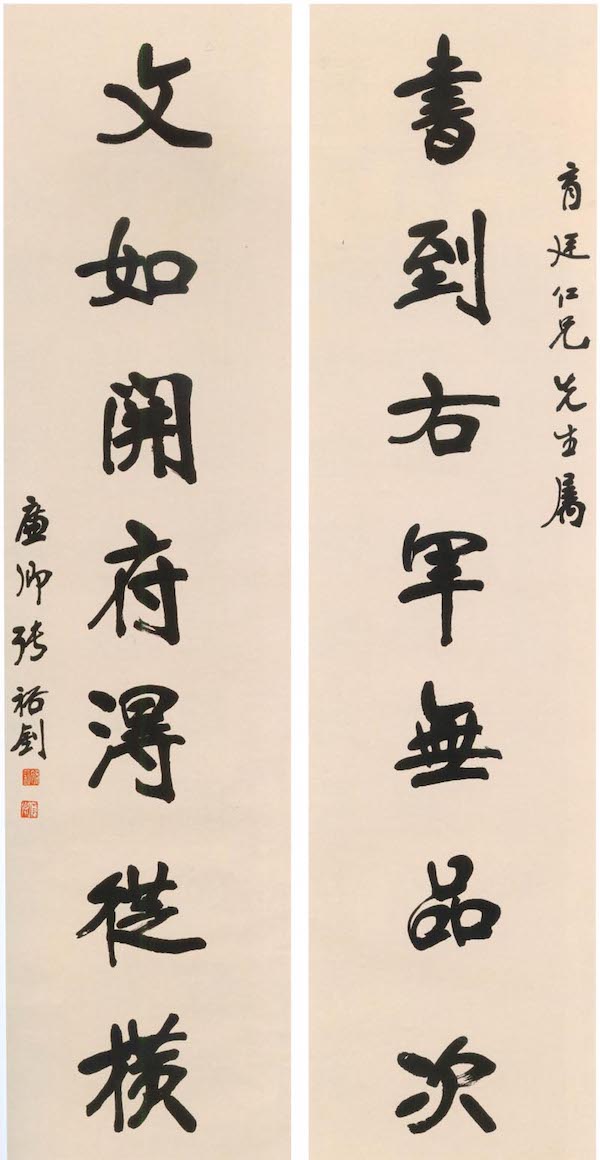 育廷仁兄先生属
書到右軍無品次
文如開府得從橫
廉卿張裕釗